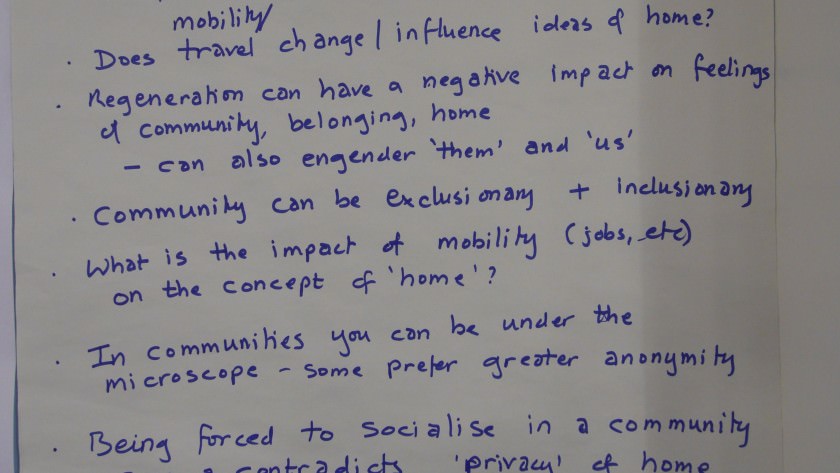 mobility/
· Does travel change / influence ideas of home?
· Regeneration can have a negative impact on feelings
of community, belonging, home
– can also engender 'them' and 'us'
· Community can be exclusionary + inclusionary
· What is the impact of mobility (jobs, etc)
on the concept of 'home'?
· In communities you can be under the
microscope – some prefer greater anonymity
· Being forced to socialise in a community
contradicts 'privacy' of home